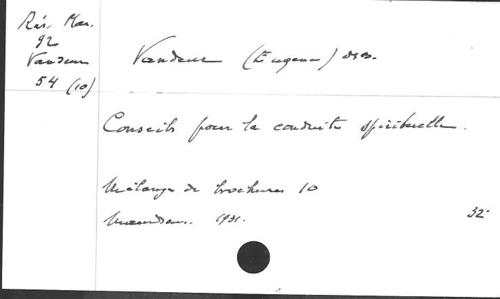 Rés. Mar.
92
Vandeur
54 (10)
Vandeur (Eugène) OSB.
Conseils pour la conduite spirituelle.
Mélanges de brochures 10
1931.
32